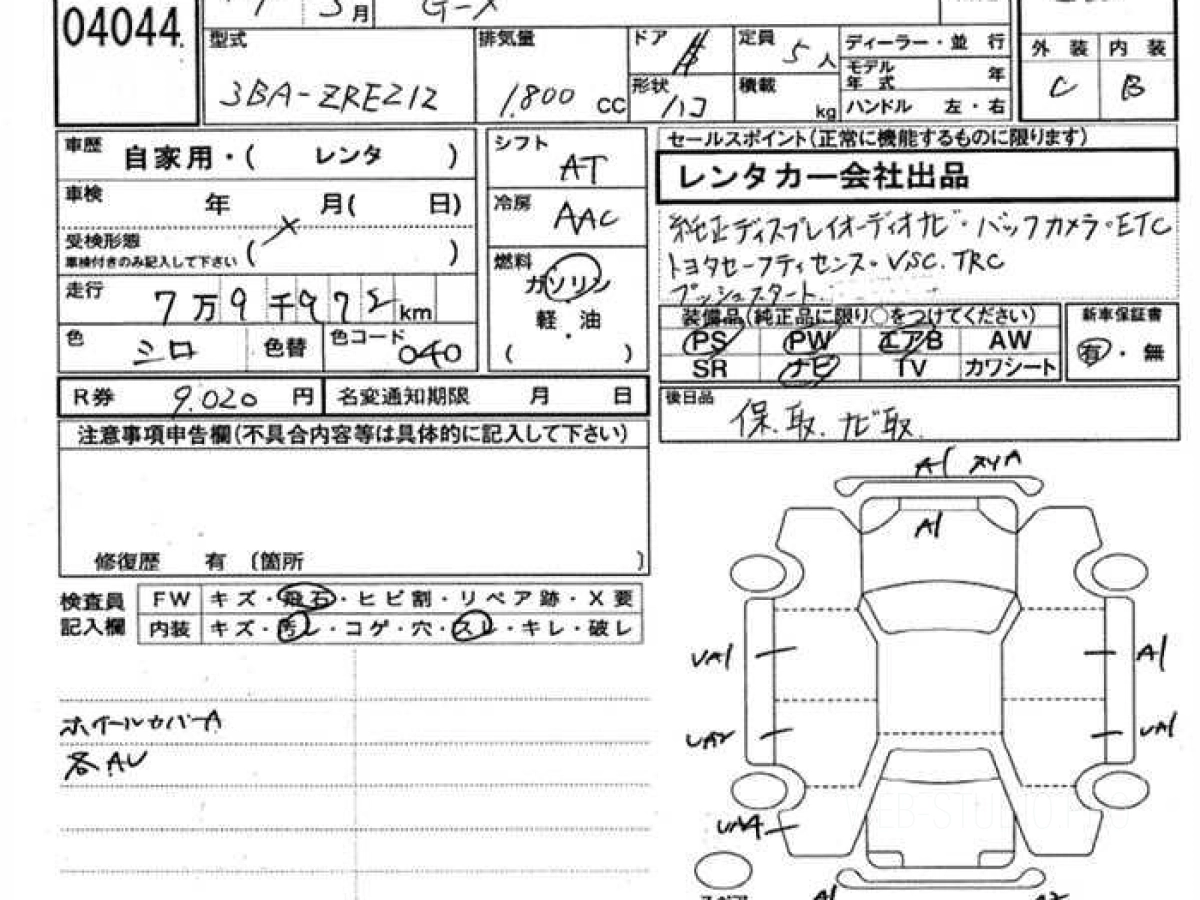 04044.
5月
G-X
型式
3BA-ZRE212
排気量
1.800 CC
ドア
定員 5人
形状 ハコ
積載 kg
ディーラー・並 行
モデル年式 年
ハンドル 左・右
外 装 内 装
C B
車歴 自家用・( レンタ )
車検 年 月( 日)
受検形態
車検付きのみ記入して下さい ( × )
走行 7万9千972km
色 シロ 色替 色コード 040
シフト AT
冷房 AAC
燃料
ガソリン
軽・油
( )
セールスポイント(正常に機能するものに限ります)
レンタカー会社出品
純正ディスプレイオーディオナビ・バックカメラ・ETC
トヨタセーフティセンス・VSC.TRC
プッシュスタート
装備品(純正品に限り○をつけてください)
PS PW エアB AW
SR ナビ TV カワシート
新車保証書
有・無
R券 9.020 円 名変通知期限 月 日
後日品
保.取.ナビ取
注意事項申告欄(不具合内容等は具体的に記入して下さい)
修復歴 有 〔箇所 〕
検査員
記入欄
FW キズ・飛石・ヒビ割・リペア跡・X要
内装 キズ・汚レ・コゲ・穴・スレ・キレ・破レ
ホイールカバーA
各AU
A1
A1
UA1
A1
UA2
UA1
UA4
A1
WEB-STUDIO.PRO